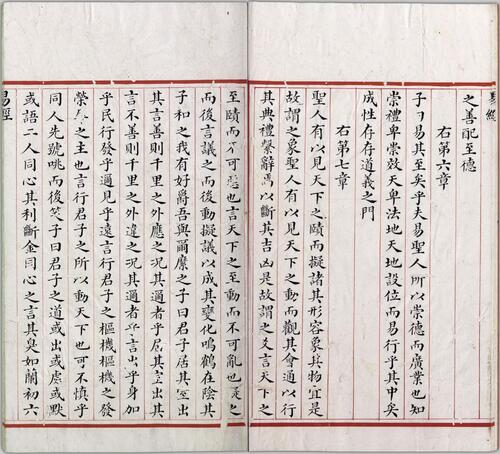 易經
之善配至德
右第六章
子曰易其至矣乎夫易聖人所以崇德而廣業也知
崇禮卑崇效天卑法地天地設位而易行乎其中矣
成性存存道義之門
右第七章
聖人有以見天下之賾而擬諸其形容象其物宜是
故謂之象聖人有以見天下之動而觀其會通以行
其典禮繫辭焉以斷其吉凶是故謂之爻言天下之
至賾而不可惡也言天下之至動而不可亂也擬之
而後言議之而後動擬議以成其變化鳴鶴在陰其
子和之我有好爵吾與爾縻之子曰君子居其室出
其言善則千里之外應之況其邇者乎居其室出其
言不善則千里之外違之況其邇者乎言出乎身加
乎民行發乎邇見乎遠言行君子之樞機樞機之發
榮辱之主也言行君子之所以動天下也可不慎乎
同人先號咷而後笑子曰君子之道或出或處或默
或語二人同心其利斷金同心之言其臭如蘭初六
易經